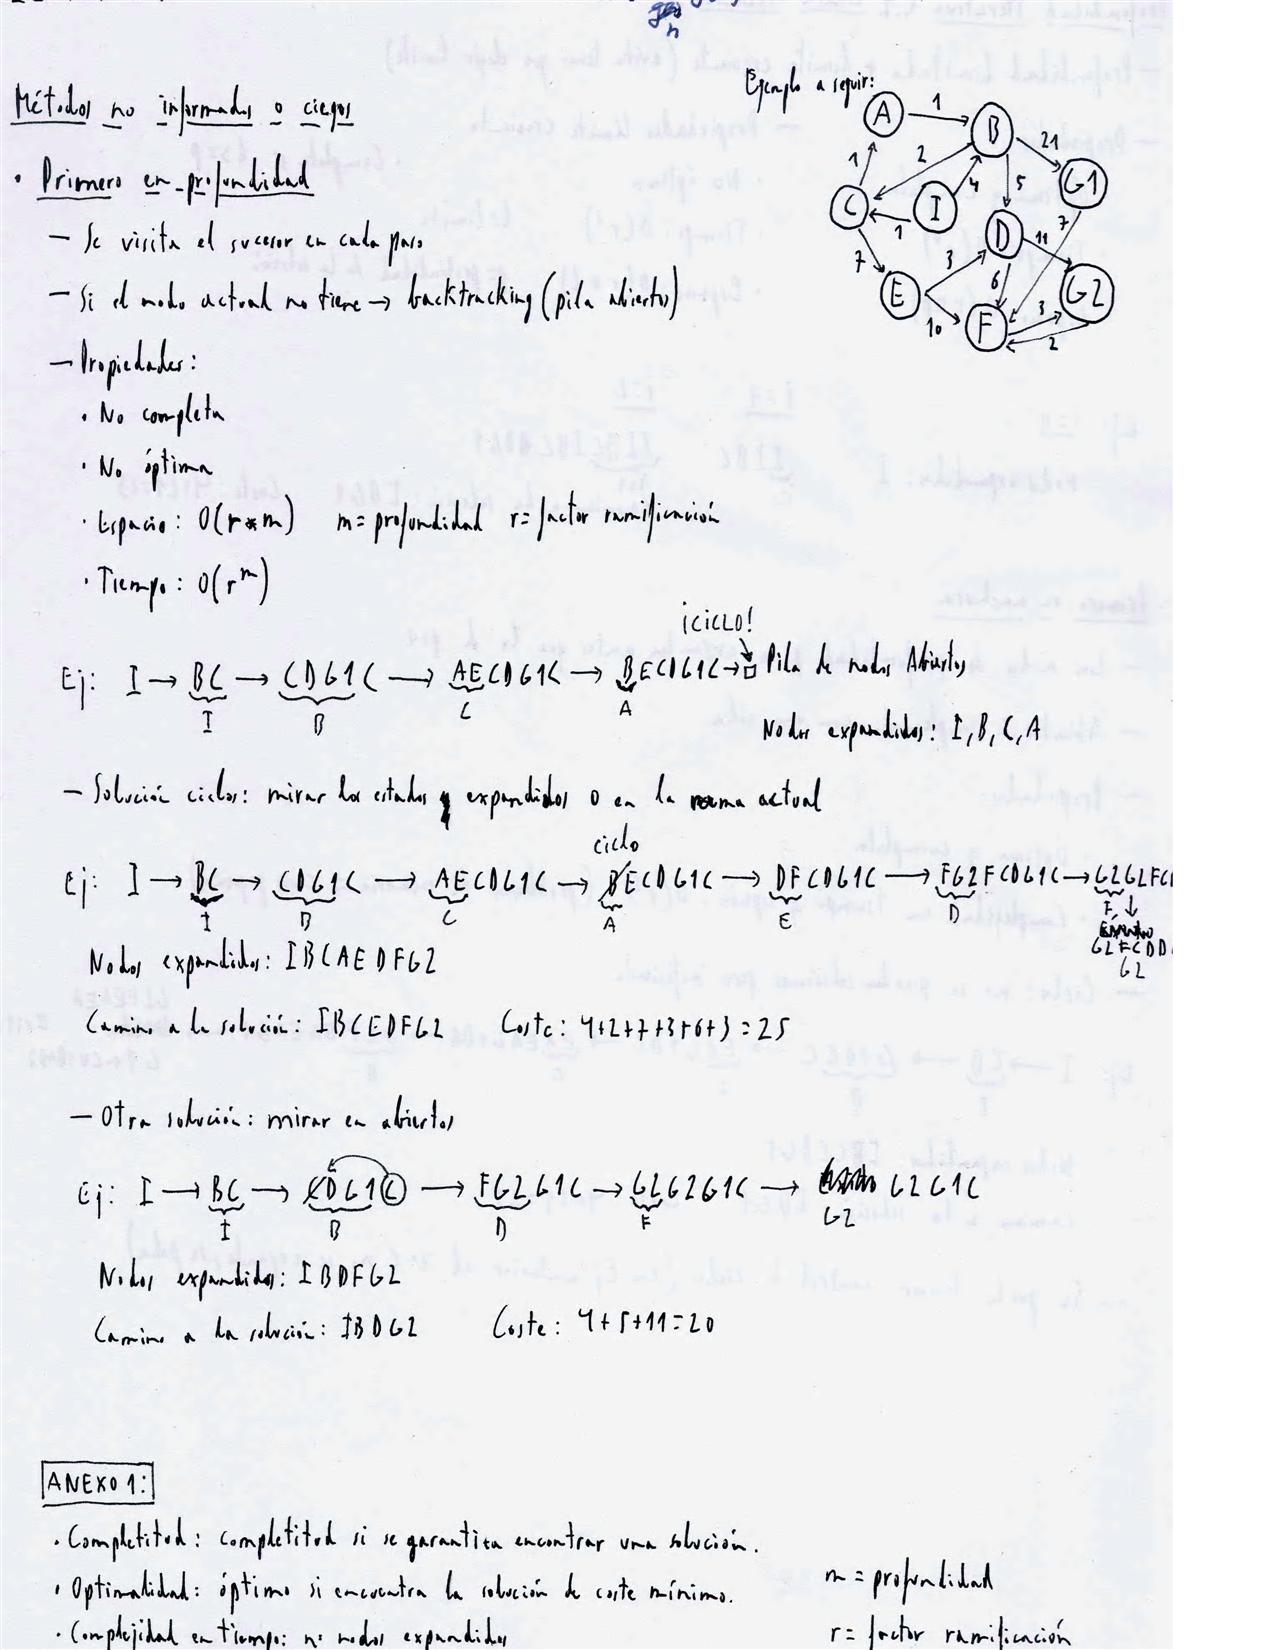 Ejemplo a seguir:
A 1 B 21 G1
1 2 4 5 7
C 1 I D 11 G2
7 3 6 3
E 10 F 2
Métodos no informados o ciegos
• Primero en profundidad
— Se visita el sucesor en cada paso
— Si el nodo actual no tiene → backtracking (pila abiertos)
— Propiedades:
• No completa
• No óptima
• Espacio: O(r*m) m = profundidad r = factor ramificación
• Tiempo: O(r^m)
¡CICLO!
Ej: I → BC → CDG1C → AECDG1C → BECDG1C → □ Pila de nodos Abiertos
I B C A
Nodos expandidos: I, B, C, A
— Solución ciclos: mirar los estados y expandidos o en la rama actual
ciclo
Ej: I → BC → CDG1C → AECDG1C → BECDG1C → DFCDG1C → FG2FCDG1C → G2G2FCD
I B C A E D F
G2FCDD
G2
Nodos expandidos: IBCAEDFG2
Camino a la solución: IBCEDFG2 Coste: 4+2+7+3+6+3=25
— Otra solución: mirar en abiertos
Ej: I → BC → CDG1C → FG2G1C → G2G2G1C → G2G1C
I B D F G2
Nodos expandidos: IBDFG2
Camino a la solución: IBDG2 Coste: 4+5+11=20
ANEXO 1:
• Completitud: completitud si se garantiza encontrar una solución.
• Optimalidad: óptimo si encuentra la solución de coste mínimo.
m = profundidad
• Complejidad en tiempo: nº nodos expandidos
r = factor ramificación